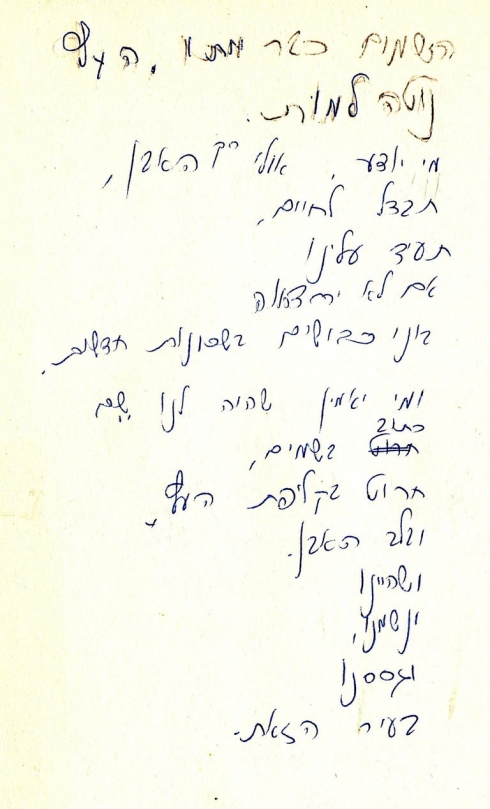 השמים כבר מתו, העץ
נוטה למות.
מי יודע, אולי רק האבן,
תבדל לחיים,
תעיד עלינו
אם לא
בוני כבישים בשכונות חדשות.
ומי יאמין שהיה לנו שֵׁם
כתוב
חרוט בשמים,
חרוט בקליפת העץ,
ובלב האבן.
ושהיינו
ונשמנו,
וגססנו
בעיר הזאת.